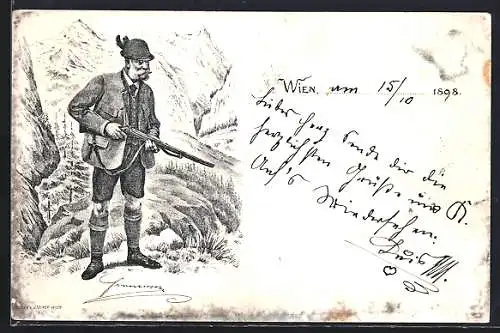 WIEN, am 15/10 1898.
Lieber Herz sende dir die
herzlichsten Grüße und K.
Auf's Wiedersehen.
Luis